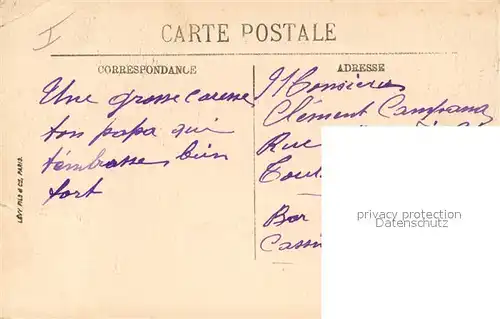 I
CARTE POSTALE
CORRESPONDANCE
Une grosse caresse
ton papa qui
t'embrasse bien
fort
LÉVY FILS & CIE, PARIS.
ADRESSE
Monsieur
Clément
Rue
Bar
privacy protection
privacy protection